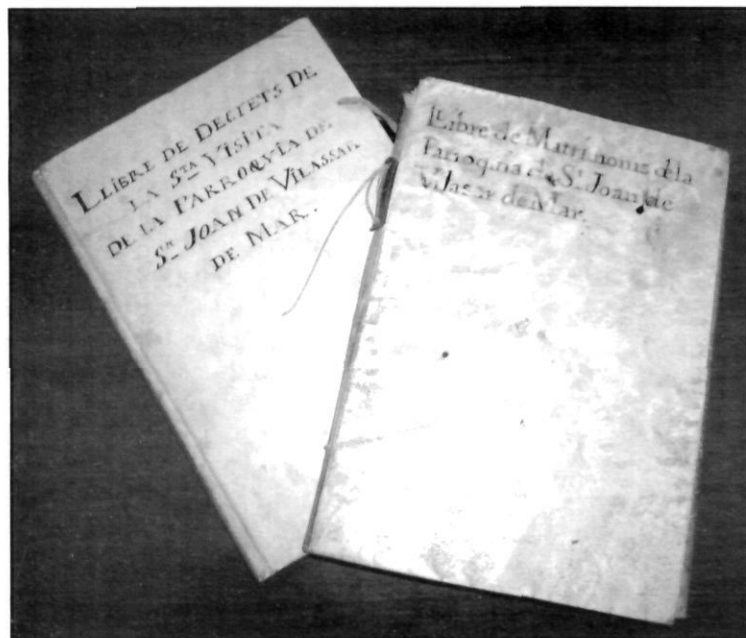 LLIBRE DE DECRETS DE
LA Sta VISITA
DE LA PARROQVIA DE
Sn JOAN DE VILASSAR
DE MAR.
LLibre de Matrimonis de la
Parroquia de St Joan de
Vilassar de Mar.